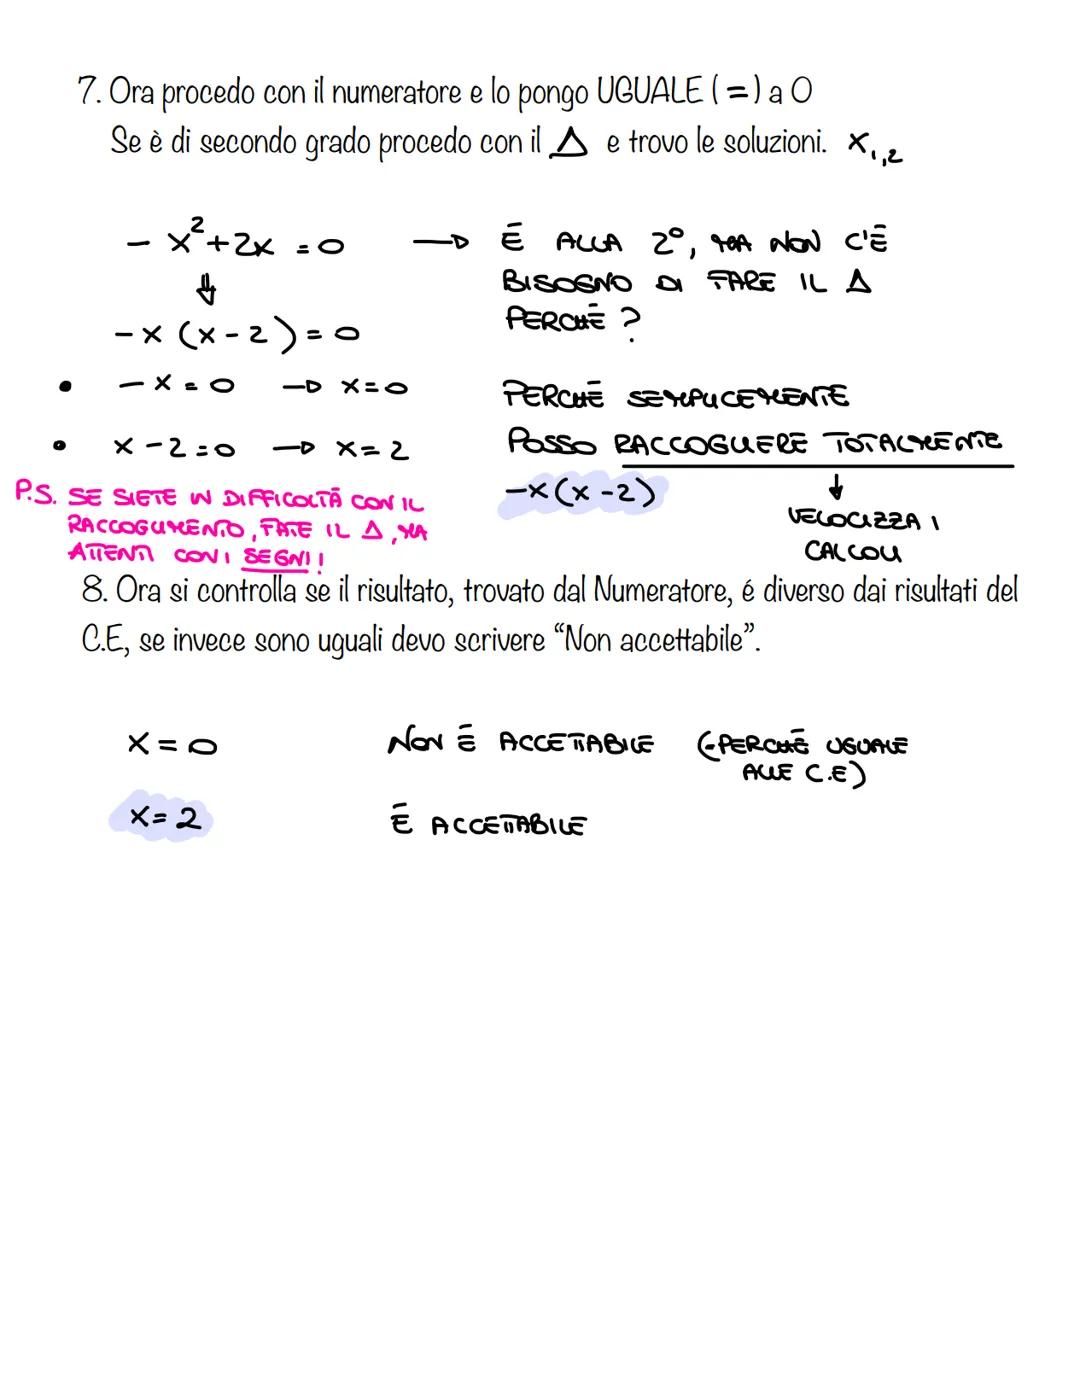 7. Ora procedo con il numeratore e lo pongo UGUALE ( = ) a 0
Se è di secondo grado procedo con il Δ e trovo le soluzioni. x₁,₂
- x² + 2x = 0 → È ALLA 2°, MA NON C'È
BISOGNO DI FARE IL Δ
PERCHÈ ?
↓
- x (x - 2) = 0
• - x = 0 → x = 0
• x - 2 = 0 → x = 2
PERCHÈ SEMPLICEMENTE
POSSO RACCOGLIERE TOTALMENTE
-x (x - 2)
↓
VELOCIZZA I
CALCOLI
P.S. SE SIETE IN DIFFICOLTÀ CON IL
RACCOGLIMENTO, FATE IL Δ, MA
ATTENTI CON I SEGNI!
8. Ora si controlla se il risultato, trovato dal Numeratore, é diverso dai risultati del
C.E, se invece sono uguali devo scrivere “Non accettabile”.
x = 0 NON È ACCETTABILE (PERCHÈ UGUALE
ALLE C.E)
x = 2 È ACCETTABILE